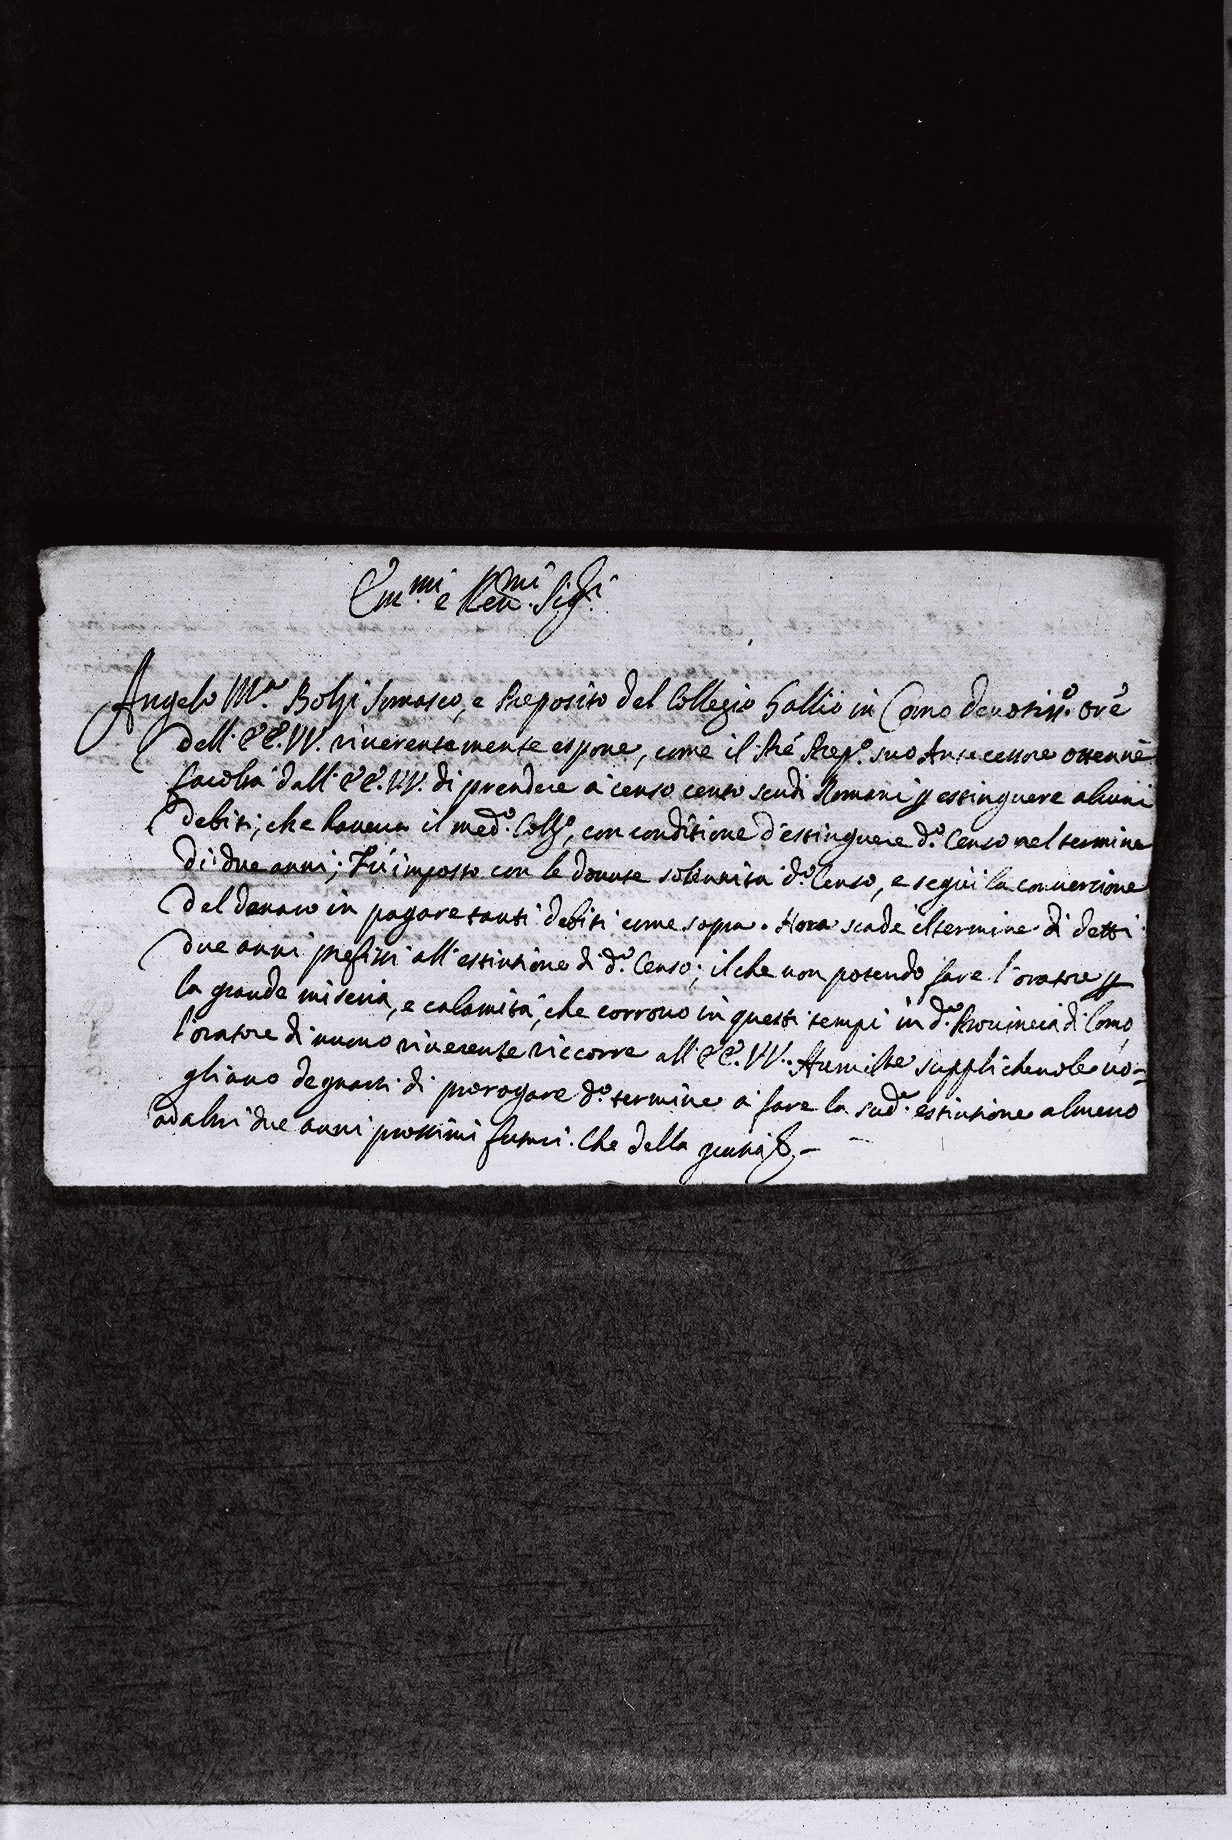 Em.mi e Rev.mi Sig.ri
Angelo M.a Bolzi Somasco, e Preposito del Collegio Gallio in Como devotiss.o ore
dell' EE. VV. riverentemente espone, come il Pre Prep.o suo Antecessore ottenne
facoltà dall' EE. VV. di prendere à censo cento scudi Romani p estinguere alcuni
debiti, che haveva il med.o Coll.o, con conditione d'estinguere d.o Censo nel termine
di due anni; Fù imposto con le dovute solennità d.o Censo, e seguì la convercione
del denaro in pagare tanti debiti come sopra. Hora scade il termine di detti
due anni prefissi all' estintione di d.o Censo; il che non potendo fare l'oratore p
la grande miseria, e calamità, che corrono in questi tempi in d.a Provincia di Como
l'oratore di nuovo riverente riccorre all' EE. VV. Humilte supplichevole vo=
gliano degnarsi di prorogare d.o termine à fare la sud.a estintione almeno
ad altri due anni prossimi futuri. Che della gratia &.